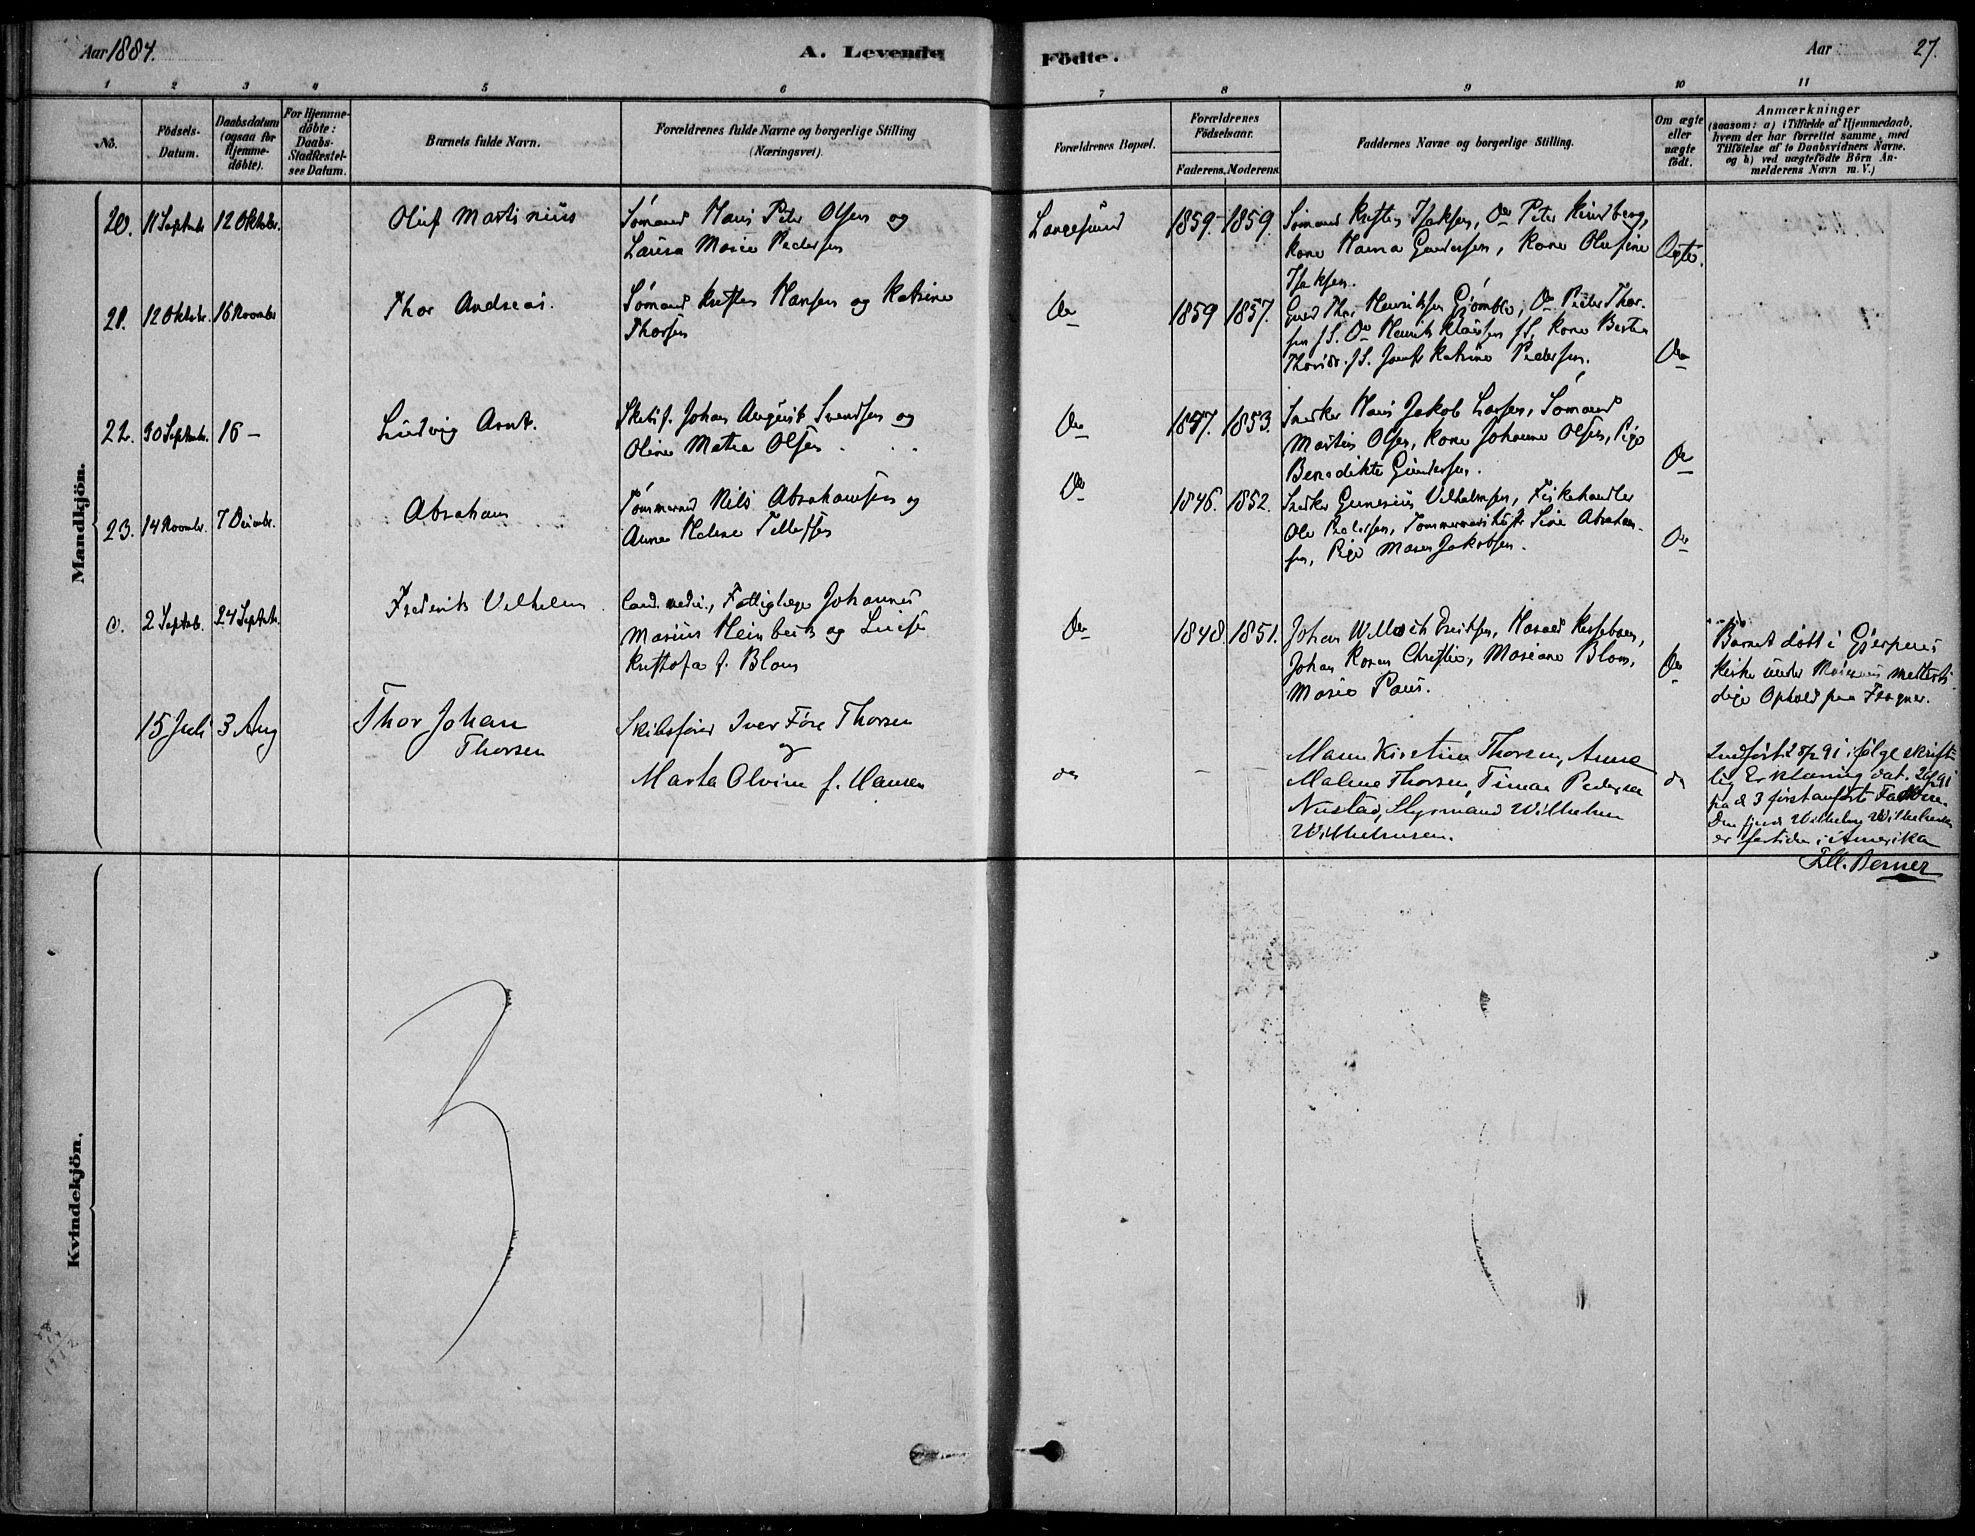 Aar 1884.
A. Levende
Födte.
Aar
27.
1 2 3 4 5 6 7 8 9 10 11
No.
Födsels-
Datum.
Daabsdatum
(ogsaa for
Hjemme-
döbte).
For Hjemme-
döbte:
Daabs-
Stadfæstel-
ses Datum.
Barnets fulde Navn.
Forældrenes fulde Navne og borgerlige Stilling
(Næringsvei).
Forældrenes Bopæl.
Forældrenes
Födselsaar.
Faderens. Moderens.
Faddernes Navne og borgerlige Stilling.
Om ægte
eller
uægte
födt.
Anmærkninger
(saasom: a) i Tilfælde af Hjemmedaab,
hvem der har forrettet samme, med
Tilföielse af to Daabsvidners Navne.
og b) ved uægtefödte Börn An-
melderens Navn m. V.)
Mandkjön.
20. 11 Septbr 12 Oktober.
Oluf Martinius
Sømand Hans Peter Olsen og
Laura Marie Pedersen
Langesund
1859. 1859.
Sømand Kristen Isaksen, Do Peter Lindberg,
Kone Hanna Gundersen, Kone Olufine
Isaksen.
Ægte.
21. 12 Oktbr. 16 Novmbr
Thor Andreas.
Sømand Kristen Hansen og Katrine
Thorsen
Do
1859 1857.
Henriksen Do Peter Thor-
sen f.S. Do Henrik Klausen f.S, Kone Berthe
f.S. Katrine Pedersen.
Do
22. 30 Septmbr. 16 –
Ludvig Arnt.
Johan August Svendsen og
Oline Mathea Olsen
Do
1847. 1853.
Snedker Hans Jakob Larsen, Sømand
Martin Olsen, Kone Johanne Olsen, Pige
Benedikte Gundersen.
Do
23. 14 Novmbr. 7 Decmbr.
Abraham
Tømmermand Nils Abrahamsen og
Anne Helene Tellefsen
Do
1846. 1852.
Snedker Gunerius Vilhelmsen, Fiskehandler
Ole Pedersen, Tømmermands Sine Abraham-
sen, Pige Maren Jakobsen.
Do
2 Septbr. 24 Septbr.
Frederik Vilhelm
Cand. medic., Fattiglæge Johannes
Marius Heinbeck og Luise
Kristofa f. Blom
Do
1848. 1851.
Johan Willoch Eriksen, Harald
Johan Koren Christie, Mariane Blom,
Marie Paus.
Do
Barnet døbt i Gjerpens
Kirke under Moderens midlerti-
dige Ophold paa Frogner.
15 Juli 3 Aug
Thor Johan
Thorsen
Skibsfører Iver Fore Thorsen
og
Marta Olvine f. Hansen
do
– –
Maren Kirstine Thorsen, Anne
Malene Thorsen, Timan Pedersen
Nustad, Styrmand Wilhelm
Wilhelmsen.
do
Indført 91 ifølge skrift-
lig Erklæring dat. 91
fra de 3 førstanførte Faddere.
Den fjerde Wilhelm Wilhelmsen
er fortiden i Amerika
Berner
Kvindekjön.